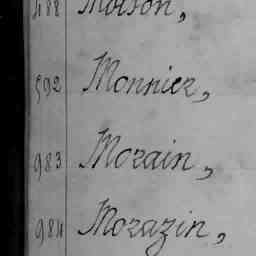 488 Moison,
592 Monnier,
983 Morain,
984 Morazin,